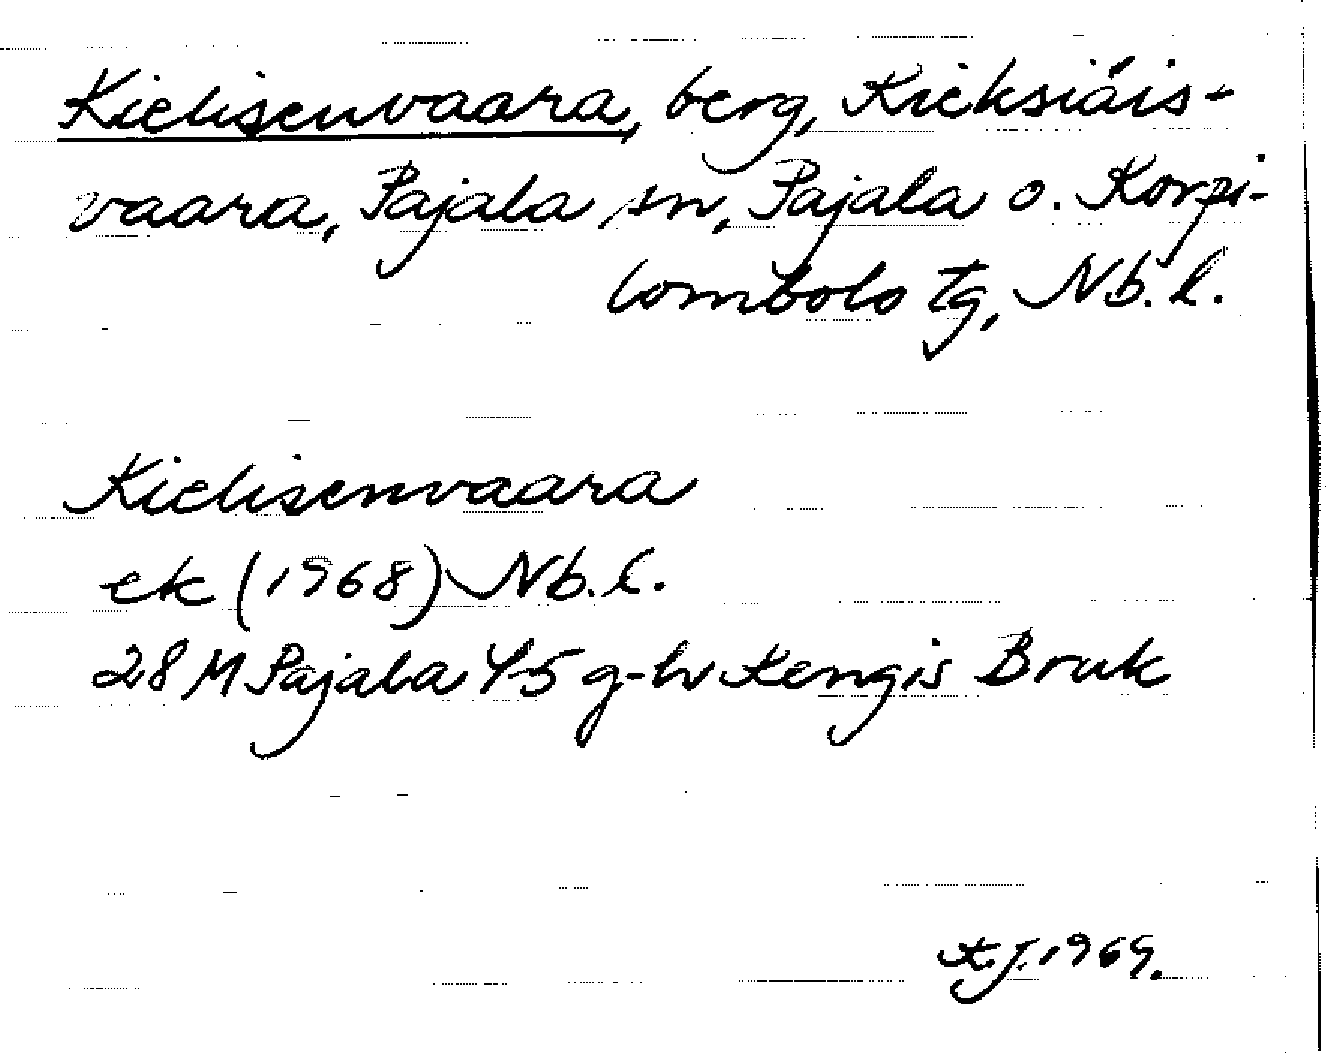 Kielisenvaara, berg, Kieksiäis-
vaara, Pajala sn, Pajala o. Korpi-
lombolo tg, Nb. l.
Kielisenvaara
ek (1968) Nb. l.
28 M Pajala 4-5 g-h Kengis Bruk
1969.